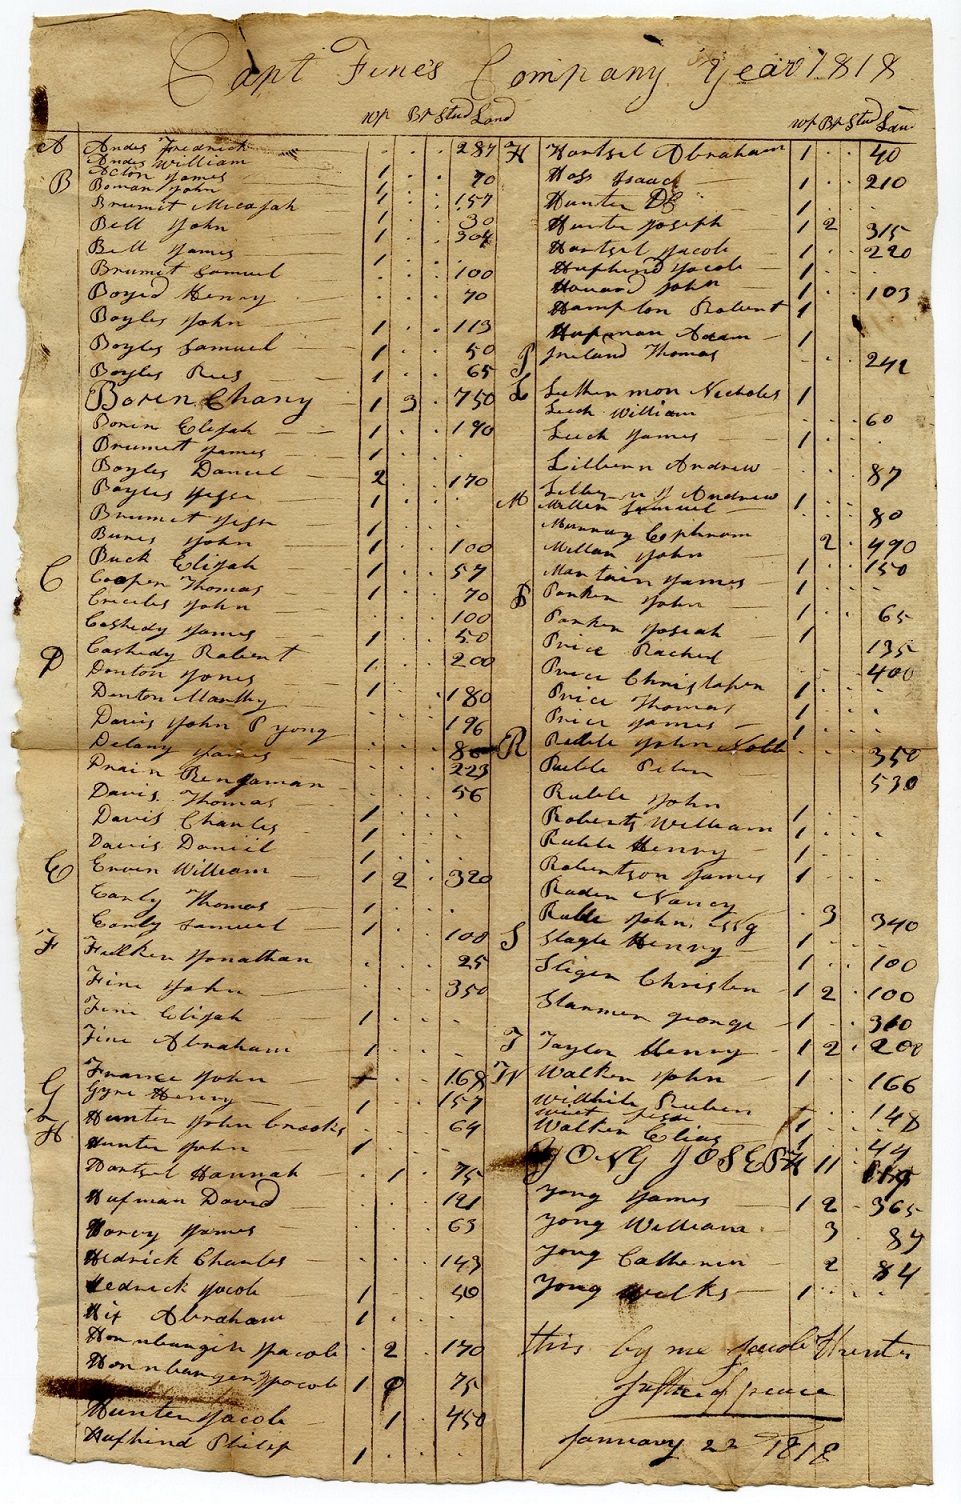 Capt Fine's Company Year 1818
Wp Bp Stud Land
A Andes Fredrick 287
Andes William
Acton James 1 70
B Boman John 1
Brumit Micajah 1 157
Bell John 30
Bell James 1 304
Brumit Samuel 1 100
Boyed Henry 70
Boyles John 1 113
Boyles Samuel 1 50
Boyles Rees 1 65
Boren Chany 1 3 750
Boren Elijah 1 190
Brumit James 1
Boyles Daniel 2 170
Boyles Jesse 1
Brumet Jesse
Bunes John 1 100
Buck Elijah 1 57
C Cooper Thomas 1 70
John 100
Cashedy James 1 50
Cashedy Robert 200
D Denton Jones 1
Denton Marthy 1 180
Davis John P yong 196
Delany James 86
Drain Benjaman 223
Davis Thomas 56
Davis Charles 1
Davis Daniel 1
E Erven William 1 2 320
Early Thomas 1
Early Samuel 1 100
F Fulken Jonathan 25
Fine John 350
Fine Elijah 1
Fine Abraham 1
France John 168
G Gyre Henry 1 157
H Hunter John Crooks 64
Hunter John 1
Hartsel Hannah 1 75
Hufman David 121
Harvy James 63
Hedrick Charles 143
Hedrick Jacob 1 50
Hix Abraham 1
Hornbarger Jacob 2 170
Hornbarger Jacob 1 75
Hunter Jacob 1 450
Hufhind Philip 1
Wp Bp Stud Lan
H Hartsel Abraham 1 40
Hoss Isaac 1 210
Hunter 1
Hunter Joseph 1 2 315
Hartsel Jacob 1 220
Hufhind Jacob 1
Howard John 1 103
Hampton Robert 1
Hufman Adam 1
Ireland Thomas 241
L Letherman Nicholes 1
Leech William 60
Leech James 1
Lilburn Andrew 87
Andrew 1
M Millen Samuel 80
Murray Ephram 2 490
Millan John 1 150
Mantain James 1
P Parken John 65
Parken Josiah 1
Price Rachel 135
Price Christopher 1 400
Price Thomas 1
Price James 1
R Ruble John Noble 350
Ruble Peter 530
Ruble John 1
Roberts William 1
Ruble Henry 1
Robertson James 1
Raden Nancy 3 340
Ruble John, Esq 1
S Slagle Henry 100
Sliger Christen 1 2 100
Stanmen george 1 310
T Taylor Henry 1 2 200
W Walken John 1 166
Willhite Reuben 148
Jesse 1
Walken Elias 1 44
YONG JOSEPH 11
yong James 1 2 365
yong William 3 84
yong Catharin 2 84
yong Wilks 1
this by me Jacob Hunter
Justice of peace
January 22 1818